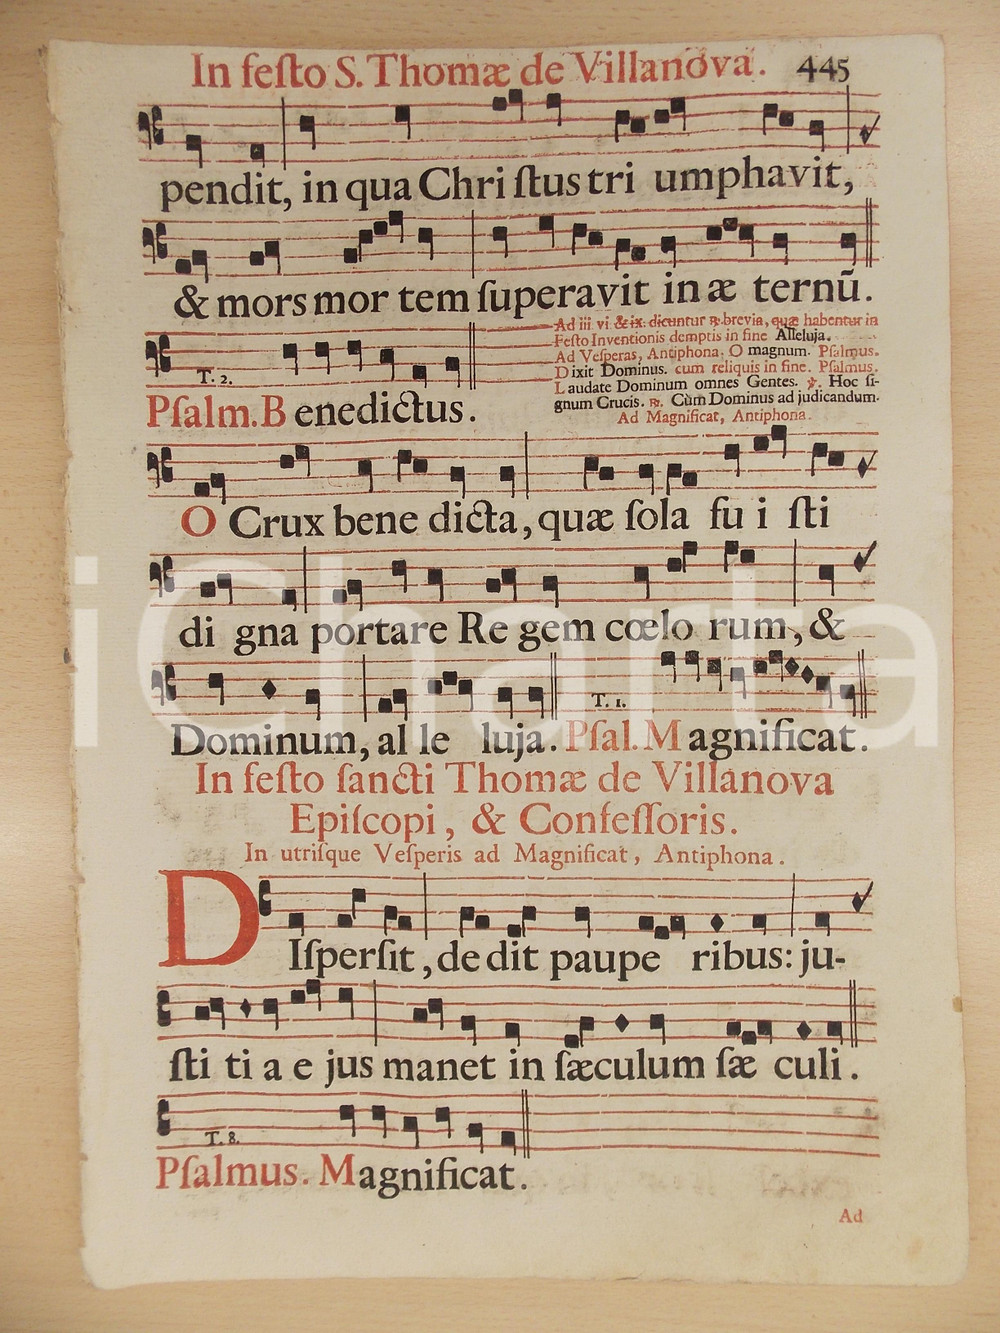 In feſto S. Thomæ de Villanova. 445
pendit, in qua Chri ſtus tri umphavit,
& mors mor tem ſuperavit in æ ternū.
Ad iii vi & ix. dicuntur ℟. brevia, quæ habentur in
Feſto Inventionis demptis in fine Alleluja.
Ad Veſperas, Antiphona. O magnum. Pſalmus.
Dixit Dominus. cum reliquis in fine. Pſalmus.
Laudate Dominum omnes Gentes. ℣. Hoc ſi-
gnum Crucis. ℟. Cùm Dominus ad judicandum.
Ad Magnificat, Antiphona.
T. 2.
Pſalm. B enedictus.
O Crux bene dicta, quæ ſola fu i ſti
di gna portare Re gem cœlo rum, &
T. 1.
Dominum, al le luja. Pſal. M agnificat.
In feſto ſancti Thomæ de Villanova
Epiſcopi, & Confeſſoris.
In utriſque Veſperis ad Magnificat, Antiphona.
DIſperſit, de dit paupe ribus: ju-
ſti ti a e jus manet in ſæculum ſæ culi.
T. 8.
Pſalmus. Magnificat.
Ad
iCharta